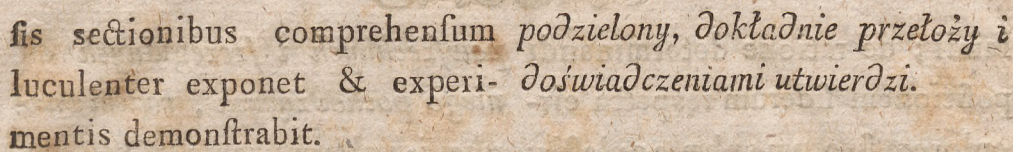 ſis sectionibus comprehenſum
luculenter exponet & experi-
mentis demonſtrabit.
podzielony, dokładnie przełoży i
doświadczeniami utwierdzi.